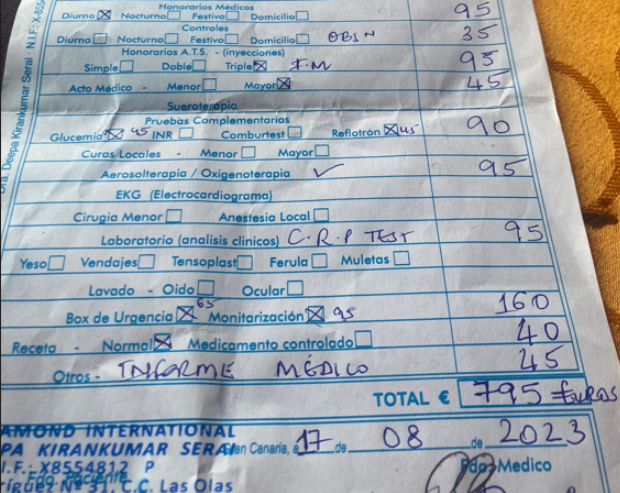 Honorarios Médicos
Diurno Nocturno Festivo Domicilio 95
Controles
Diurno Nocturno Festivo Domicilio OBSN 35
Honorarios A.T.S. - (inyecciones)
Simple Doble Triple I.M 95
Acto Médico - Menor Mayor 45
Sueroterapia
Pruebas Complementarias
Glucemia 45 INR Comburtest Reflotrón 45 90
Curas Locales - Menor Mayor
Aerosolterapia / Oxigenoterapia 95
EKG (Electrocardiograma)
Cirugía Menor Anestesia Local
Laboratorio (analisis clínicos) C.R.P TEST 95
Yeso Vendajes Tensoplast Ferula Muletas
Lavado - Oido Ocular
Box de Urgencia 65 Monitarización 95 160
Receta - Normal Medicamento controlado 40
Otros - INFORME MÉDICO 45
TOTAL € 795 EUROS
AMOND INTERNATIONAL
PA KIRANKUMAR SERAI Gran Canaria, a 17 de 08 de 2023
I.F.: X8554812 P
Fdo. Paciente Fdo. Medico
ríguez Nº 31, C.C. Las Olas
Dra. Deepa Kirankumar Serai - N.I.F.: X-855